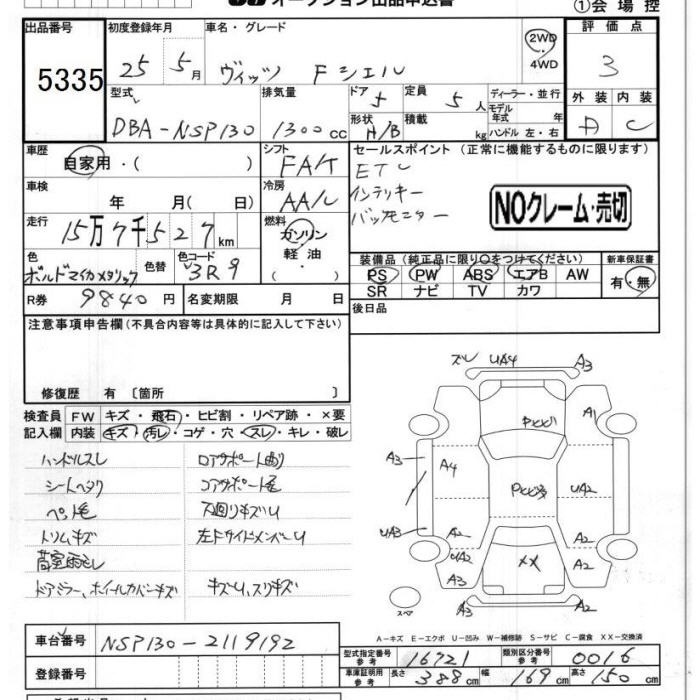 オークション出品申込書
①会場控
出品番号
5335
初度登録年月
25 5月
車名・グレード
ヴィッツ Fシエル
2WD
4WD
評価点
3
型式
DBA-NSP130
排気量
1300cc
ドア
5
定員
5人
形状
H/B
積載
kg
ディーラー・並行
モデル年式 年
ハンドル 左・右
外装 内装
A C
車歴
自家用・( )
シフト
FA/T
セールスポイント (正常に機能するものに限ります)
ETC
インテリキー
バックモニター
NOクレーム・売切
車検
年 月( 日)
冷房
AA/C
走行
15万7千527km
燃料
ガソリン
軽油
( )
色
ボルドーマイカメタリック
色替
色コード
3R9
装備品(純正品に限り○をつけてください)
PS PW ABS エアB AW
SR ナビ TV カワ
新車保証書
有・無
R券 9840円
名変期限 月 日
後日品
注意事項申告欄(不具合内容等は具体的に記入して下さい)
修復歴 有〔箇所 〕
検査員記入欄
FW キズ・飛石・ヒビ割・リペア跡・×要
内装 キズ・汚レ・コゲ・穴・スレ・キレ・破レ
ハンドルスレ
シートヘタリ
ペット毛
トリムキズ
ドアミラー、ホイールカバーキズ
ロアサポート曲り
コアサポート
下回りキズU
左Fサイドメンバーu
キズU、スリキズ
ズレ UA4 A3
A1
Pとび
A3
A4
Pとび多
UA2
UA3
A2
A2
UA2
××
A2
A3
A3 A2
スペア
A-キズ E-エクボ U-凹み W-補修跡 S-サビ C-腐食 XX-交換済
車台番号
NSP130-2119192
登録番号
型式指定番号
参考
16721
類別区分番号
参考
0016
車庫証明用
参考
長さ 388cm 幅 169cm 高さ 150cm